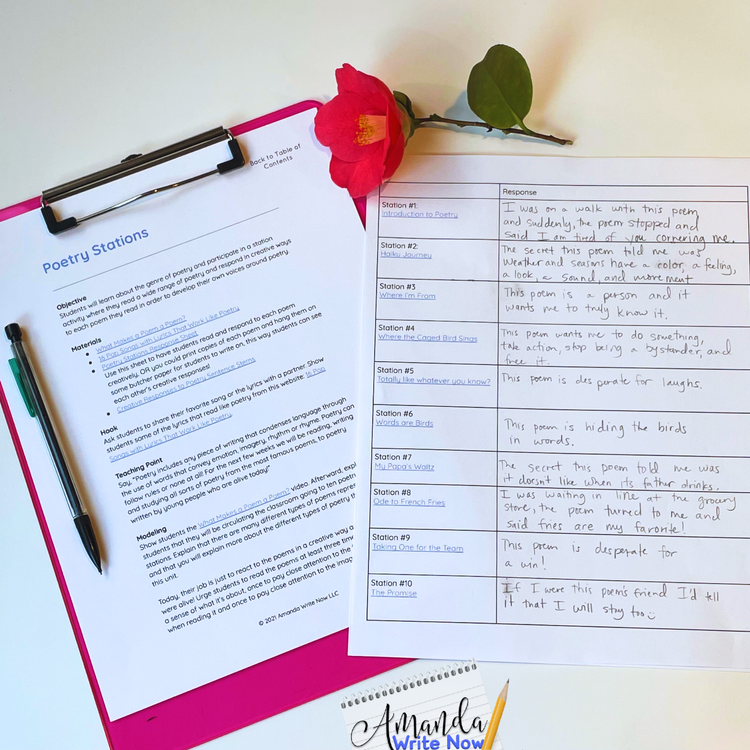 Back to Table of
Contents
Poetry Stations
Objective
Students will learn about the genre of poetry and participate in a station
activity where they read a wide range of poetry and respond in creative ways
to each poem they read in order to develop their own voices around poetry.
Materials
What Makes a Poem a Poem?
16 Pop Songs with Lyrics That Work Like Poetry
Poetry Stations Response Sheet
Use this sheet to have students read and respond to each poem
creatively. OR you could print copies of each poem and hang them on
some butcher paper for students to write on, this way students can see
each other's creative responses!
Creative Responses to Poetry Sentence Stems
Hook
Ask students to share their favorite song or the lyrics with a partner. Show
students some of the lyrics that read like poetry from this website: 16 Pop
Songs with Lyrics That Work Like Poetry
Teaching Point
Say, "Poetry includes any piece of writing that condenses language through
the use of words that convey emotion, imagery, rhythm or rhyme. Poetry can
follow rules or none at all! For the next few weeks we will be reading, writing
and studying all sorts of poetry from the most famous poems, to poetry
written by young people who are alive today!"
Modeling
Show students the What Makes a Poem a Poem? video. Afterward, explain
students that they will be circulating the classroom going to ten poetry
stations. Explain that there are many different types of poems
and that you will explain more about the different types of poetry
this unit.
Today, their job is just to react to the poems in a creative way
were alive! Urge students to read the poems at least three
a sense of what it's about, once to pay close attention to the
when reading it and once to pay close attention to the
© 2021 Amanda Write Now LLC
Response
Station #1:
Introduction to Poetry
I was on a walk with this poem
and suddenly, the poem stopped and
said I am tired of you cornering me.
Station #2:
Haiku Journey
The secret this poem told me was
weather and seasons have a color, a feeling,
a look, a sound, and movement
Station #3
Where I'm From
This poem is a person and it
wants me to truly know it.
Station #4
Where the Caged Bird Sings
This poem wants me to do something,
take action, stop being a bystander, and
free it.
Station #5
Totally like whatever you know?
This poem is desperate for laughs.
Station #6
Words are Birds
This poem is hiding the birds
in words.
Station #7
My Papa's Waltz
The secret this poem told me was
it doesnt like when its father drinks.
Station #8
Ode to French Fries
I was waiting in line at the grocery
store, the poem turned to me and
said fries are my favorite!
Station #9
Taking One for the Team
This poem is desperate for
a win!
Station #10
The Promise
If I were this poems friend I'd tell
it that I will stay too☺
Amanda
Write Now